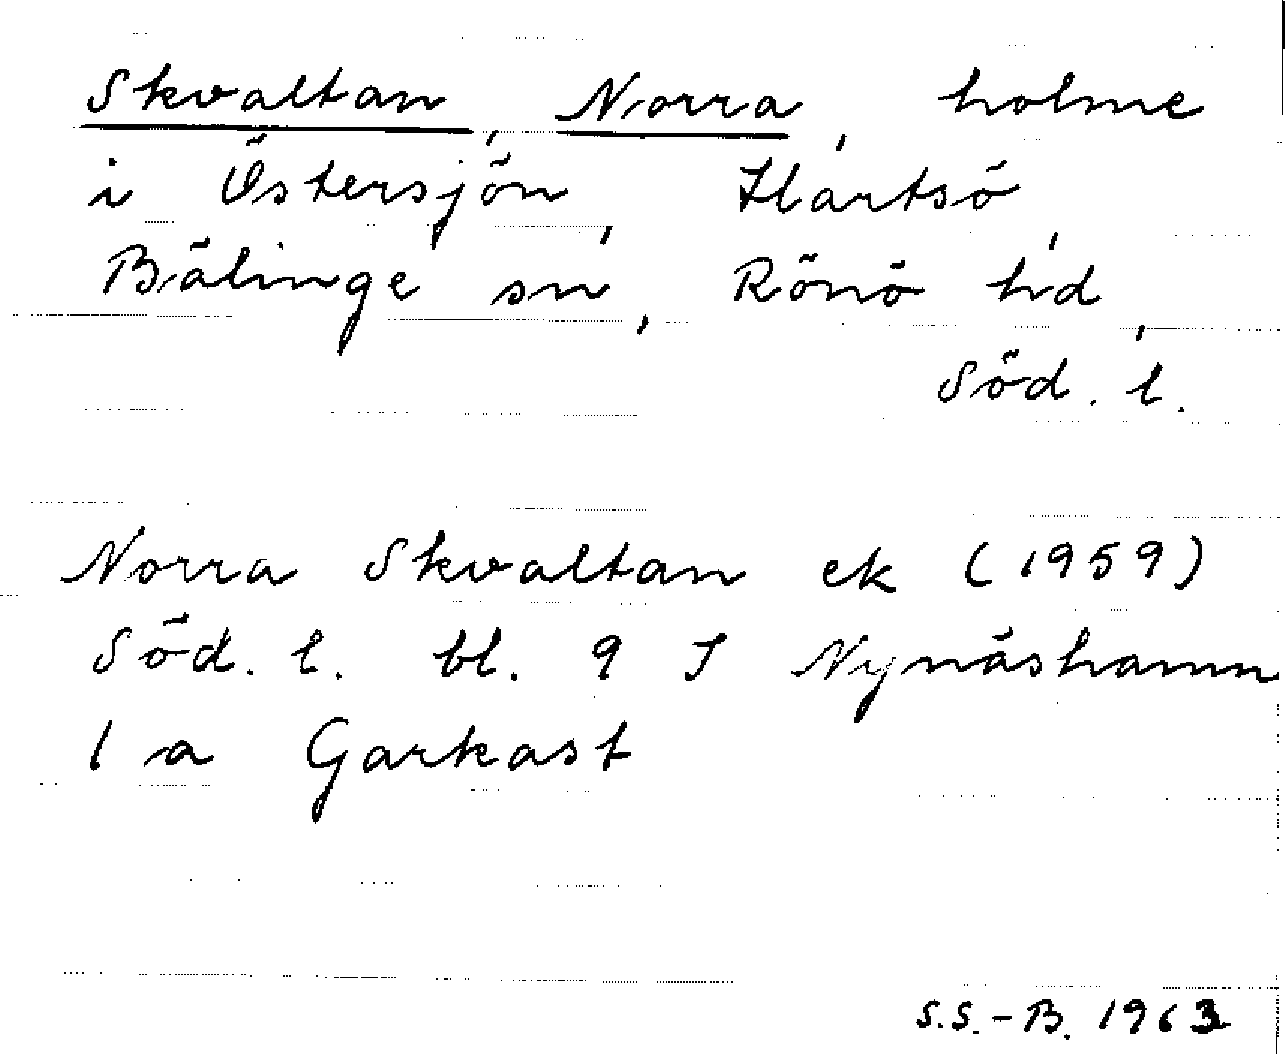 Skvaltan, Norra, holme
i Östersjön, Hartsö,
Bälinge sn, Rönö hd,
Söd. l.
Norra Skvaltan ek (1959)
Söd. l. bl. 9 I Nynäshamn
1 a Garkast
S.S.-B. 1963